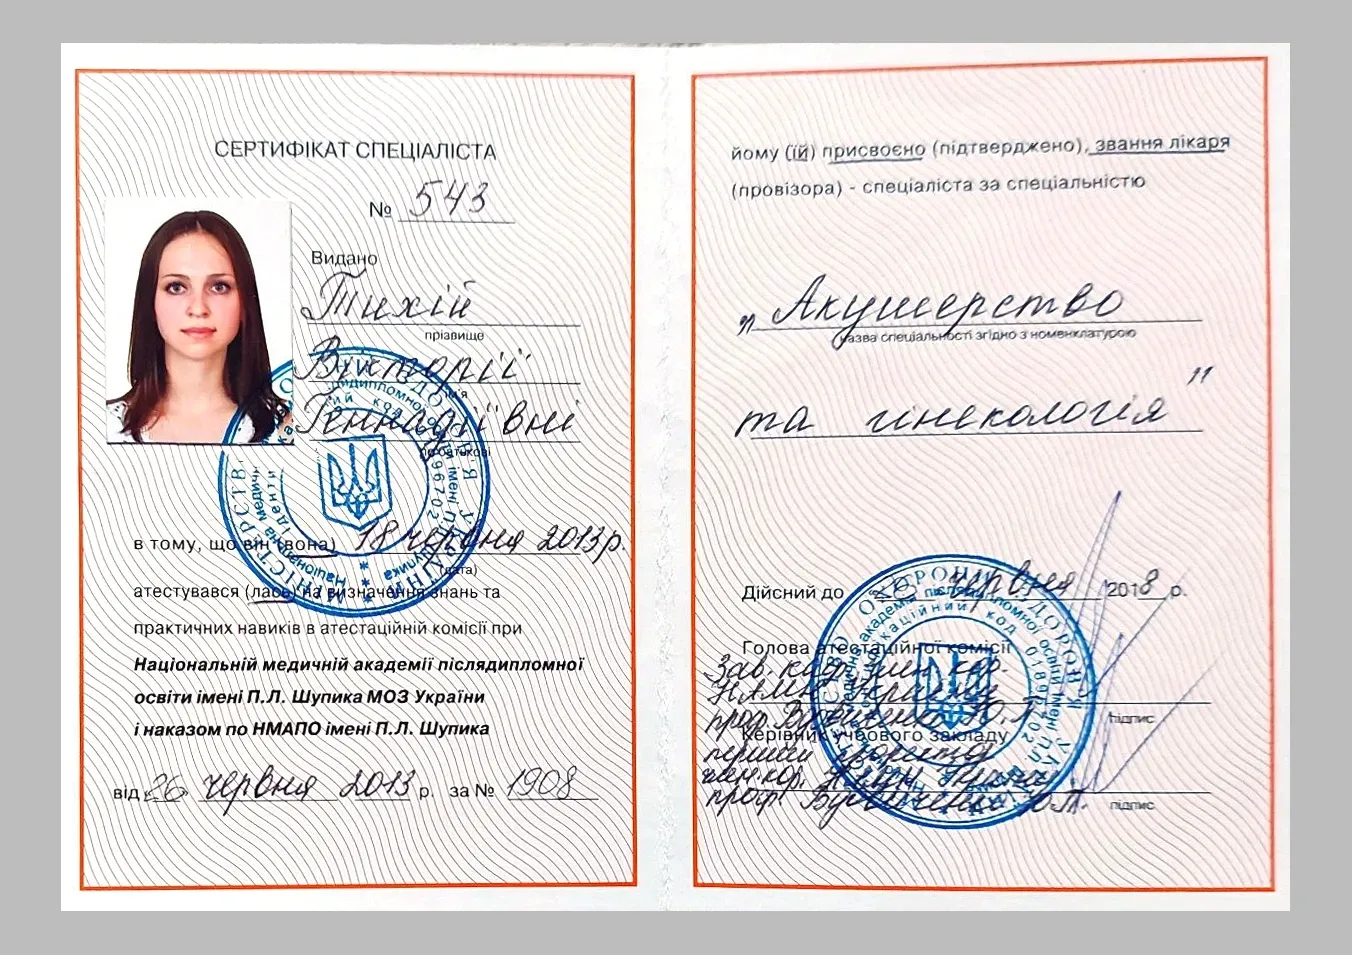 СЕРТИФІКАТ СПЕЦІАЛІСТА
№ 543
Видано
Тихій
прізвище
Вікторії
Геннадіївні
по батькові
в тому, що він (вона) 18 червня 2013р.
(дата)
атестувався (лась) на визначення знань та
практичних навиків в атестаційній комісії при
Національній медичній академії післядипломної
освіти імені П.Л. Шупика МОЗ України
і наказом по НМАПО імені П.Л. Шупика
від 26 червня 2013 р. за № 1908
йому (їй) присвоєно (підтверджено), звання лікаря
(провізора) - спеціаліста за спеціальністю
„Акушерство
назва спеціальності згідно з номенклатурою
та гінекологія"
Дійсний до 26 червня 2018 р.
Голова атестаційної комісії
Зав. каф. член кор.
НАМН України
проф. Ю.
підпис
Керівник учбового закладу
перший проректор
член.кор. НАМН України
проф. Ю.
підпис